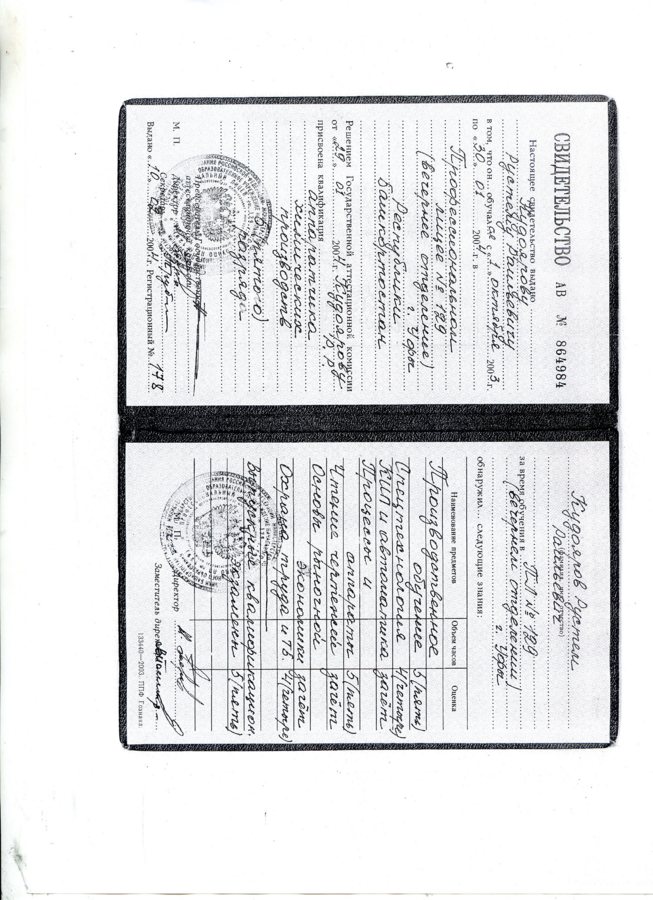 СВИДЕТЕЛЬСТВО АВ № 864984
Настоящее свидетельство выдано
Кудоярову
Рустему Раильевичу
в том, что он обучался с «1» октября 2003г.
по «30» 01 200 г. в
Профессиональном
лицее № 129
(вечернее отделение)
г. Уфы
Республики
Башкортостан
Решением Государственной аттестационной комиссии
от «29» 01 2004г. Кудоярову
Р.Р.
присвоена квалификация
аппаратчика
химических
производств
(пятого)
разряда
М. П.
Директор
Секретарь
Выдано «10» 200 г. Регистрационный № 178
Кудояров Рустем
Раильевич
за время обучения в ПЛ № 129
(вечернем отделении)
г. Уфы
обнаружил следующие знания:
Наименование предметов Объем часов Оценка
Производственное
обучение 5 (пять)
Спецтехнология 4 (четыре)
КИП и автоматика зачёт
Процессы и
аппараты 5 (пять)
Чтение чертежей зачёт
Основы рыночной
экономики зачёт
Охрана труда и ТБ. 4 (четыре)
Выпускные квалификацион
экзамены 5 (пять)
М. П.
Директор
Заместитель директора
133440—2003. ППФ Гознака